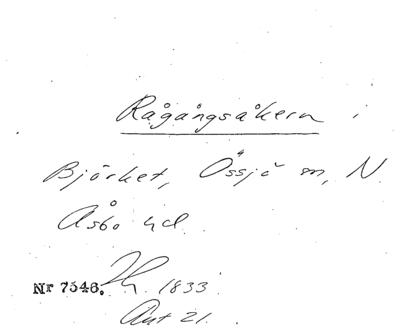 Rågångsåkern i
Björket, Össjö sn, N.
Åsbo hd.
Nr 7546. Jh. 1833.
Akt 21.